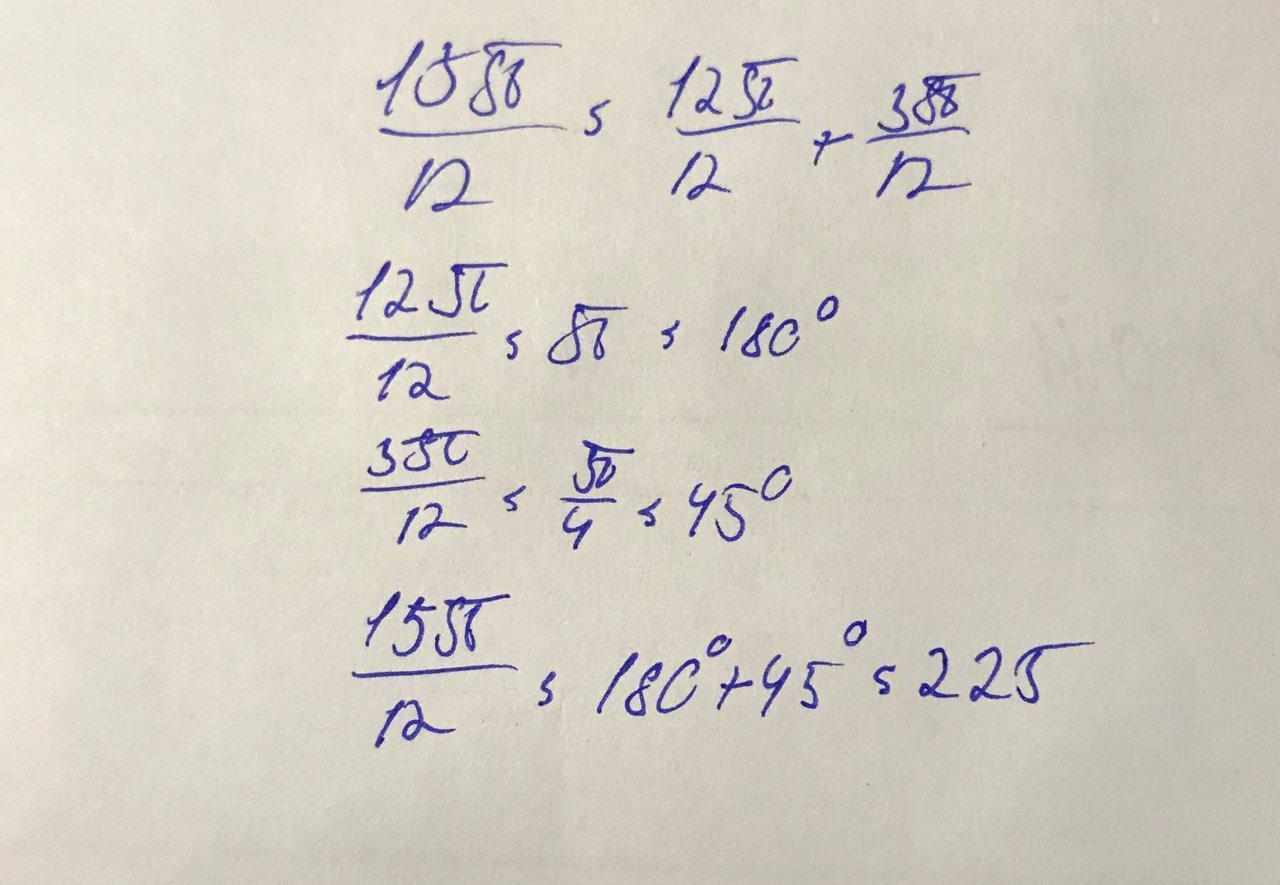 15π/12 = 12π/12 + 3π/12
12π/12 = π = 180°
3π/12 = π/4 = 45°
15π/12 = 180° + 45° = 225